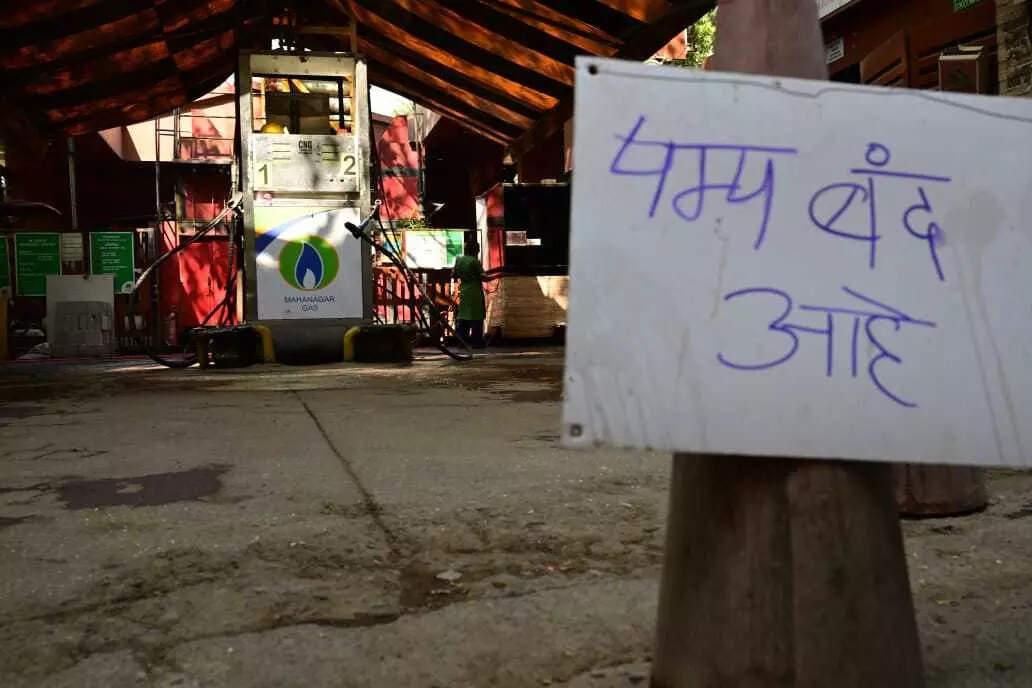 पम्प बंद
आहे
CNG
1 2
MAHANAGAR
GAS